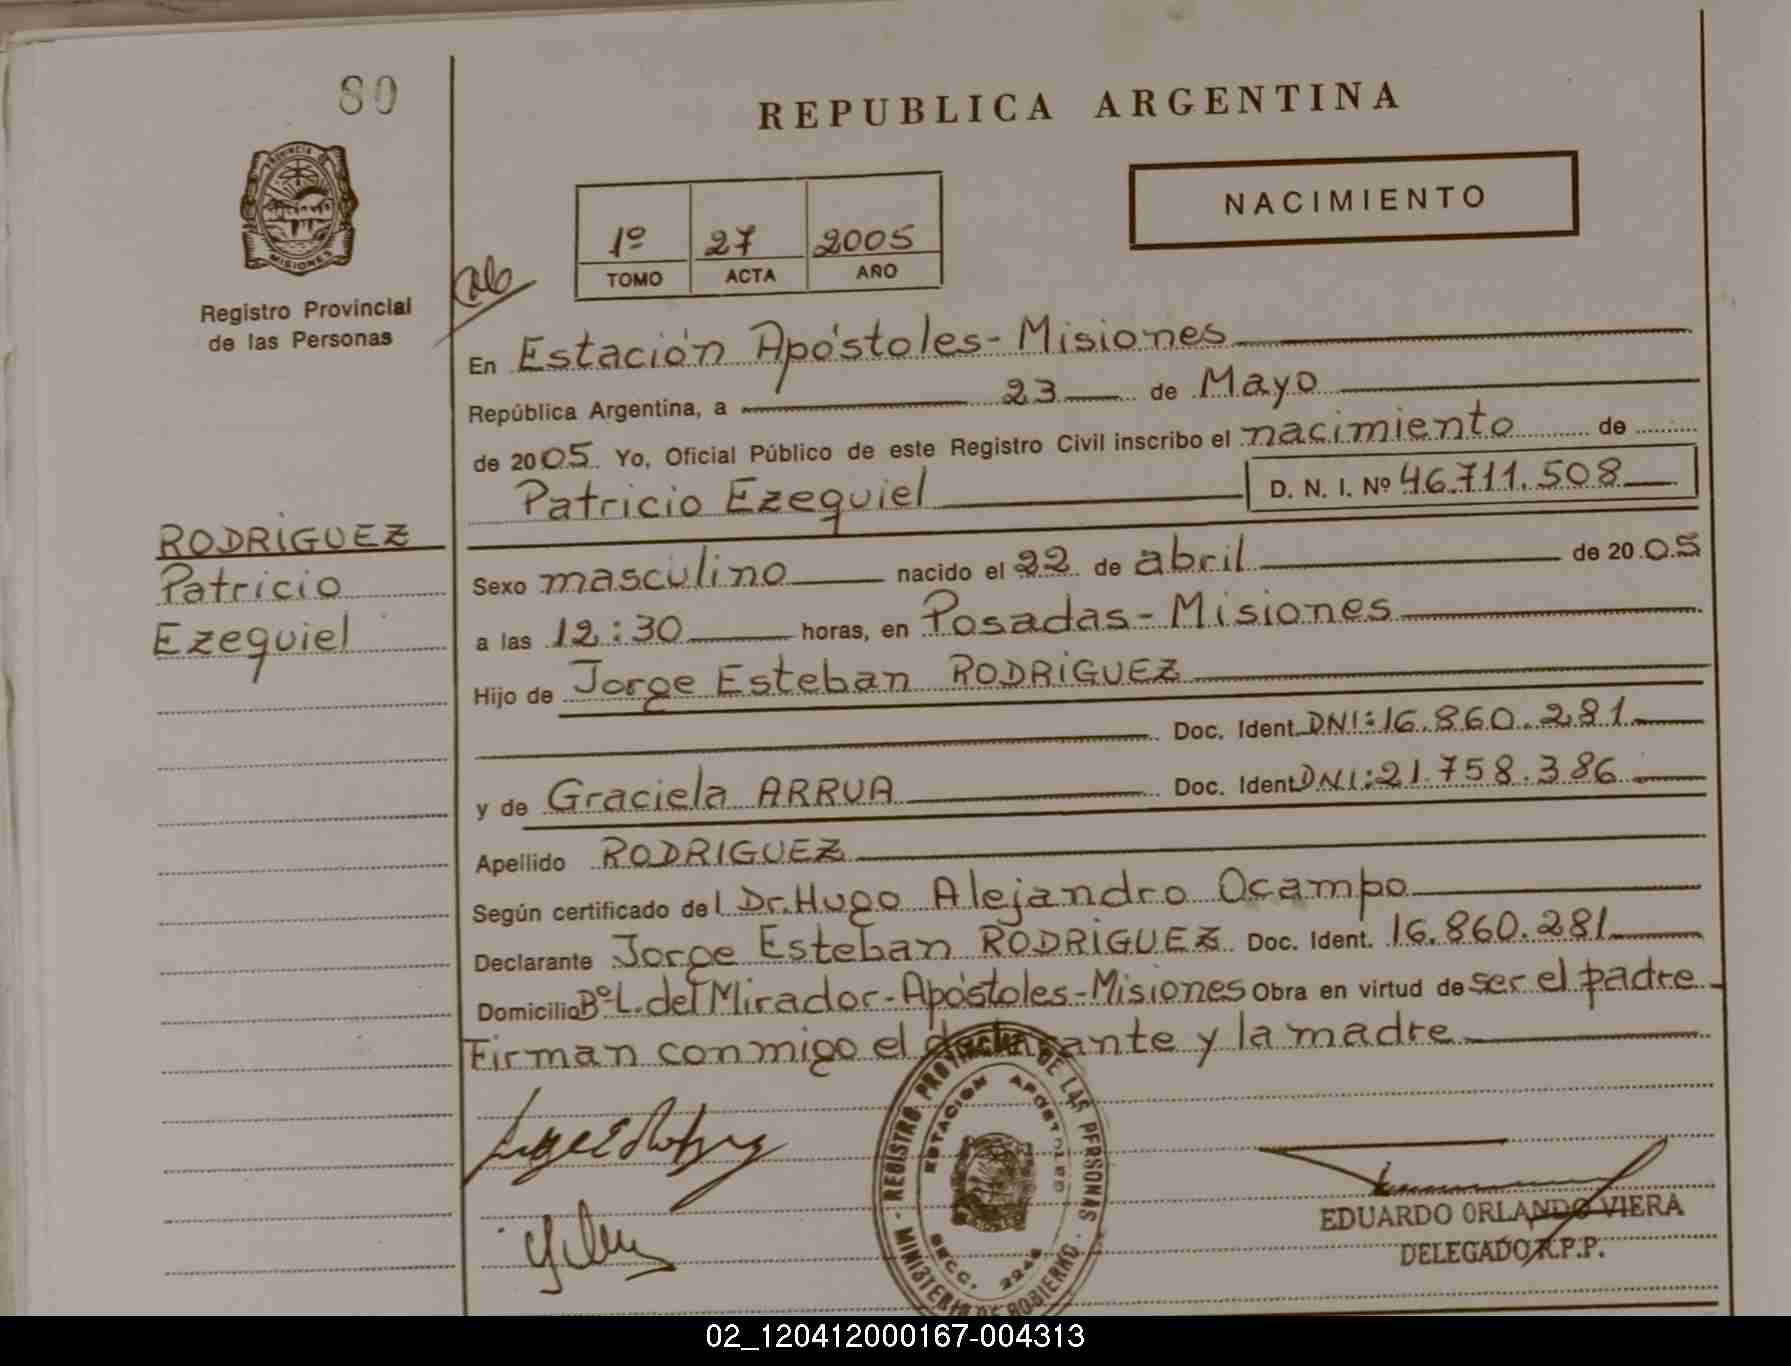 80
REPUBLICA ARGENTINA
NACIMIENTO
PROVINCIA DE
MISIONES
Registro Provincial
de las Personas
1º 27 2005
TOMO ACTA AÑO
En Estación Apóstoles - Misiones
República Argentina, a 23 de Mayo
de 2005. Yo, Oficial Público de este Registro Civil inscribo el nacimiento de
Patricio Ezequiel D. N. I. Nº 46.711.508
RODRIGUEZ
Patricio
Ezequiel
Sexo masculino nacido el 22 de abril de 2005
a las 12:30 horas, en Posadas - Misiones
Hijo de Jorge Esteban RODRIGUEZ
Doc. Ident. DNI: 16.860.281
y de Graciela ARRUA Doc. Ident. DNI: 21.758.386
Apellido RODRIGUEZ
Según certificado del Dr. Hugo Alejandro Ocampo
Declarante Jorge Esteban RODRIGUEZ Doc. Ident. 16.860.281
Domicilio Bº L. del Mirador - Apóstoles - Misiones Obra en virtud de ser el padre
Firman conmigo el declarante y la madre
REGISTRO PROVINCIAL DE LAS PERSONAS
ESTACION APOSTOLES
SECC.
MINISTERIO DE GOBIERNO
EDUARDO ORLANDO VIERA
DELEGADO R.P.P.
02_120412000167-004313